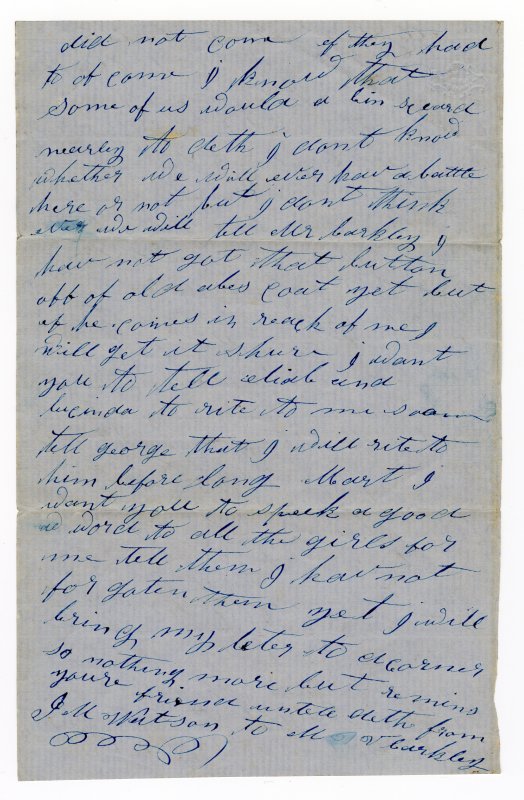 did not come if they had
to of come I know that
some of us would a bin scard
nearley to deth I dont know
whether we will ever hav a battle
here or not but I dont think
we will tell Mr barkley I
hav not got that button
off of old abes coat yet but
if he comes in reach of me I
will get it shure I want
you to tell eliab and
lucinda to rite to me soon
tell george that I will rite to
him before long Mart I
want you to speek a good
word to all the girls for
me tell them I hav not
forgoten them yet I will
bring my leter to a corner
so nothing more but remins
youre friend untell dethe from
J M Watson to M V barkley